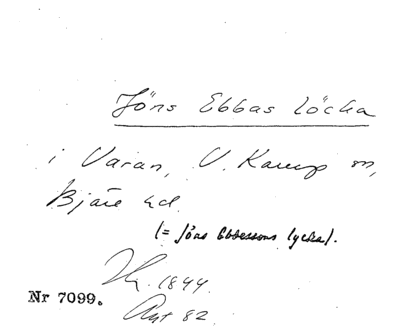 Jöns Ebbas löcka
i Varan, V. Karup sn,
Bjäre hd.
(= Jöns Ebbessons lycka).
1844
Nr 7099.
82